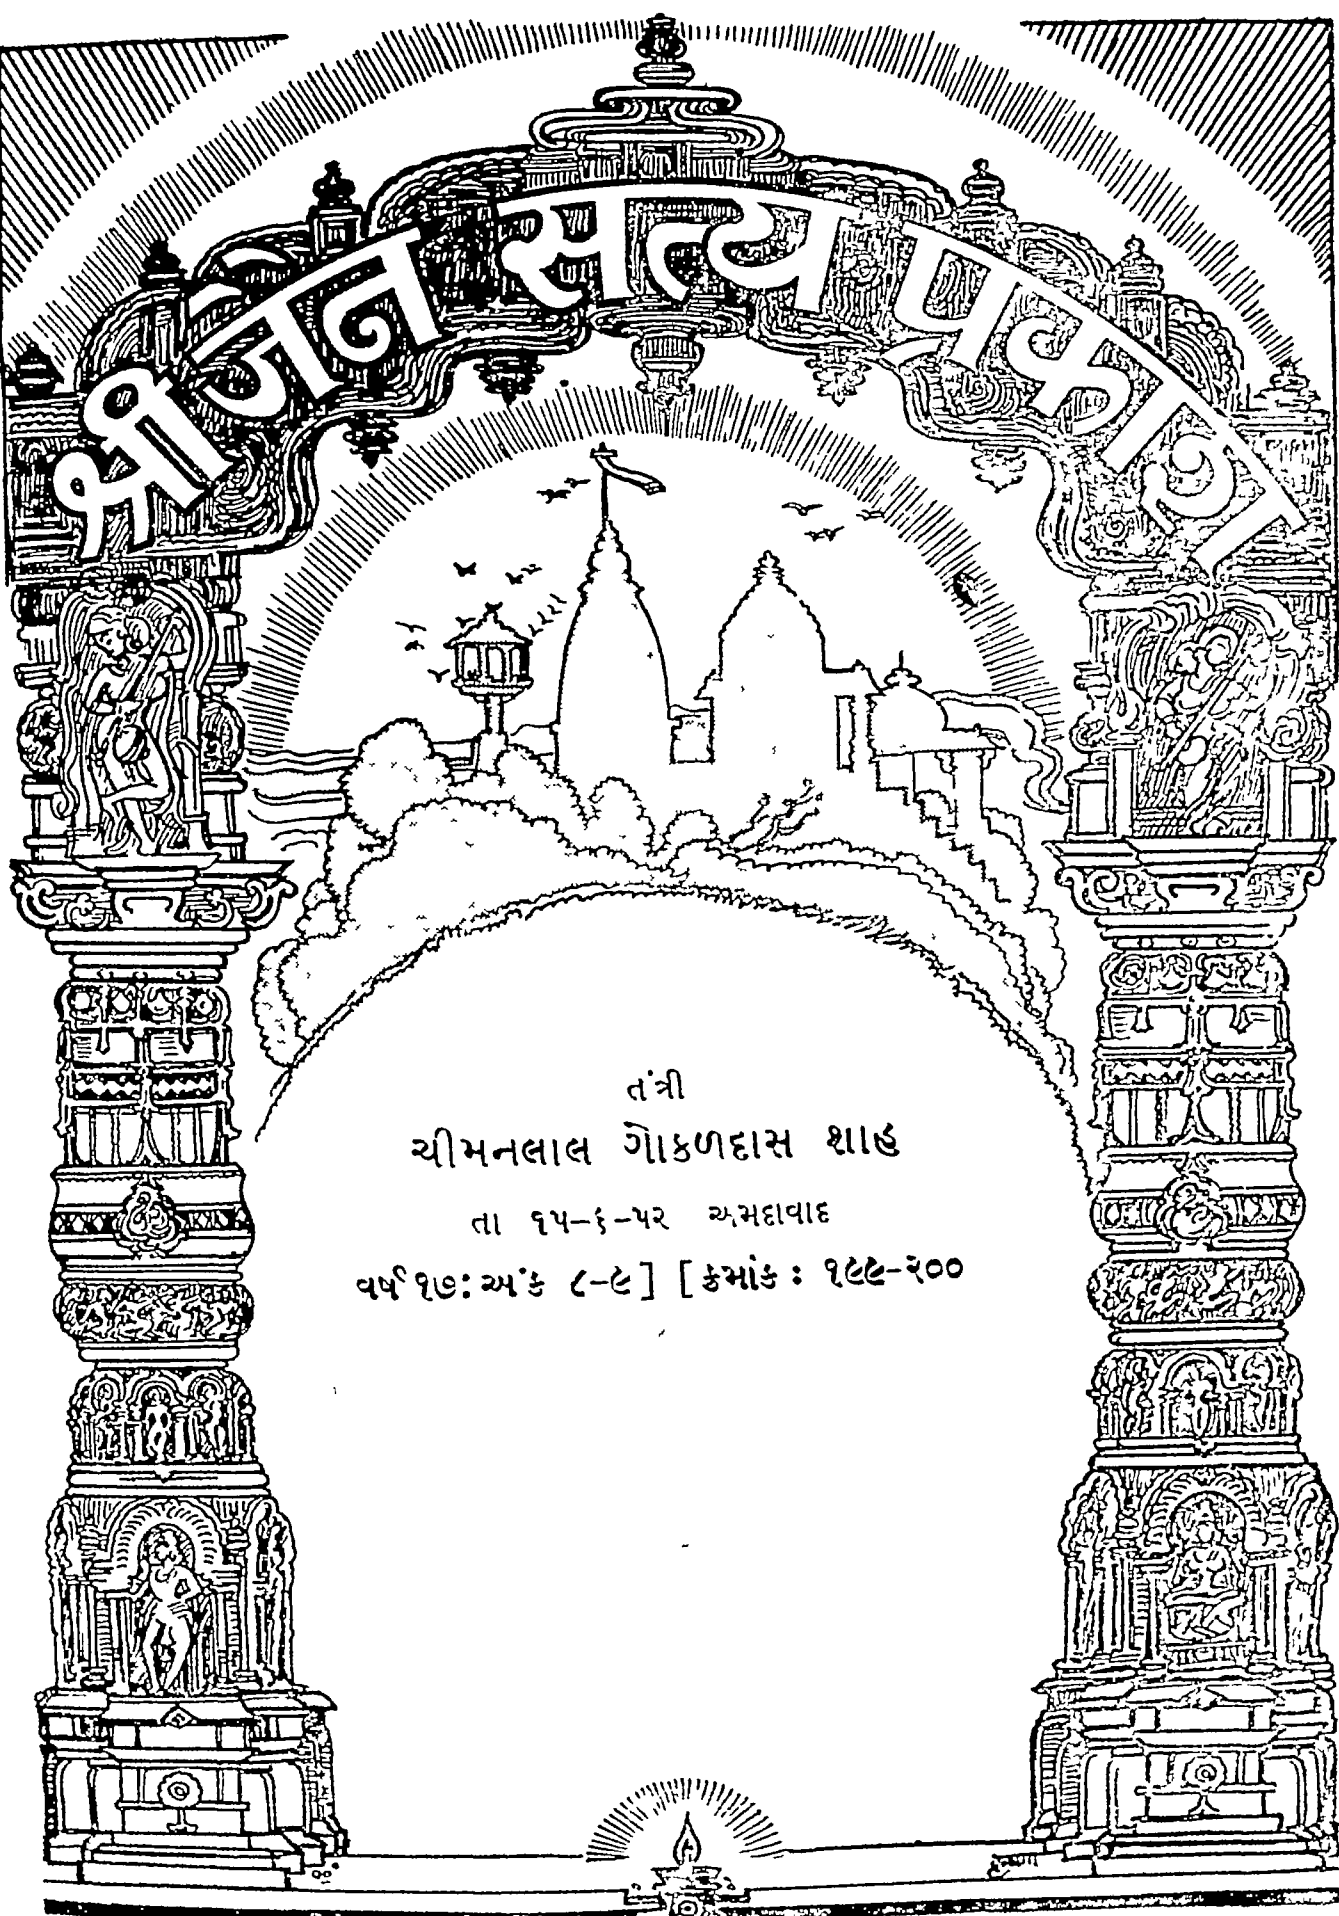 श्री जैन सत्य प्रकाश
તંત્રી
ચીમનલાલ ગોકળદાસ શાહ
તા ૧૫-૬-૫૨ અમદાવાદ
વર્ષ ૧૭ : અંક ૮-૯ ] [ ક્રમાંક : ૧૯૯-૨૦૦